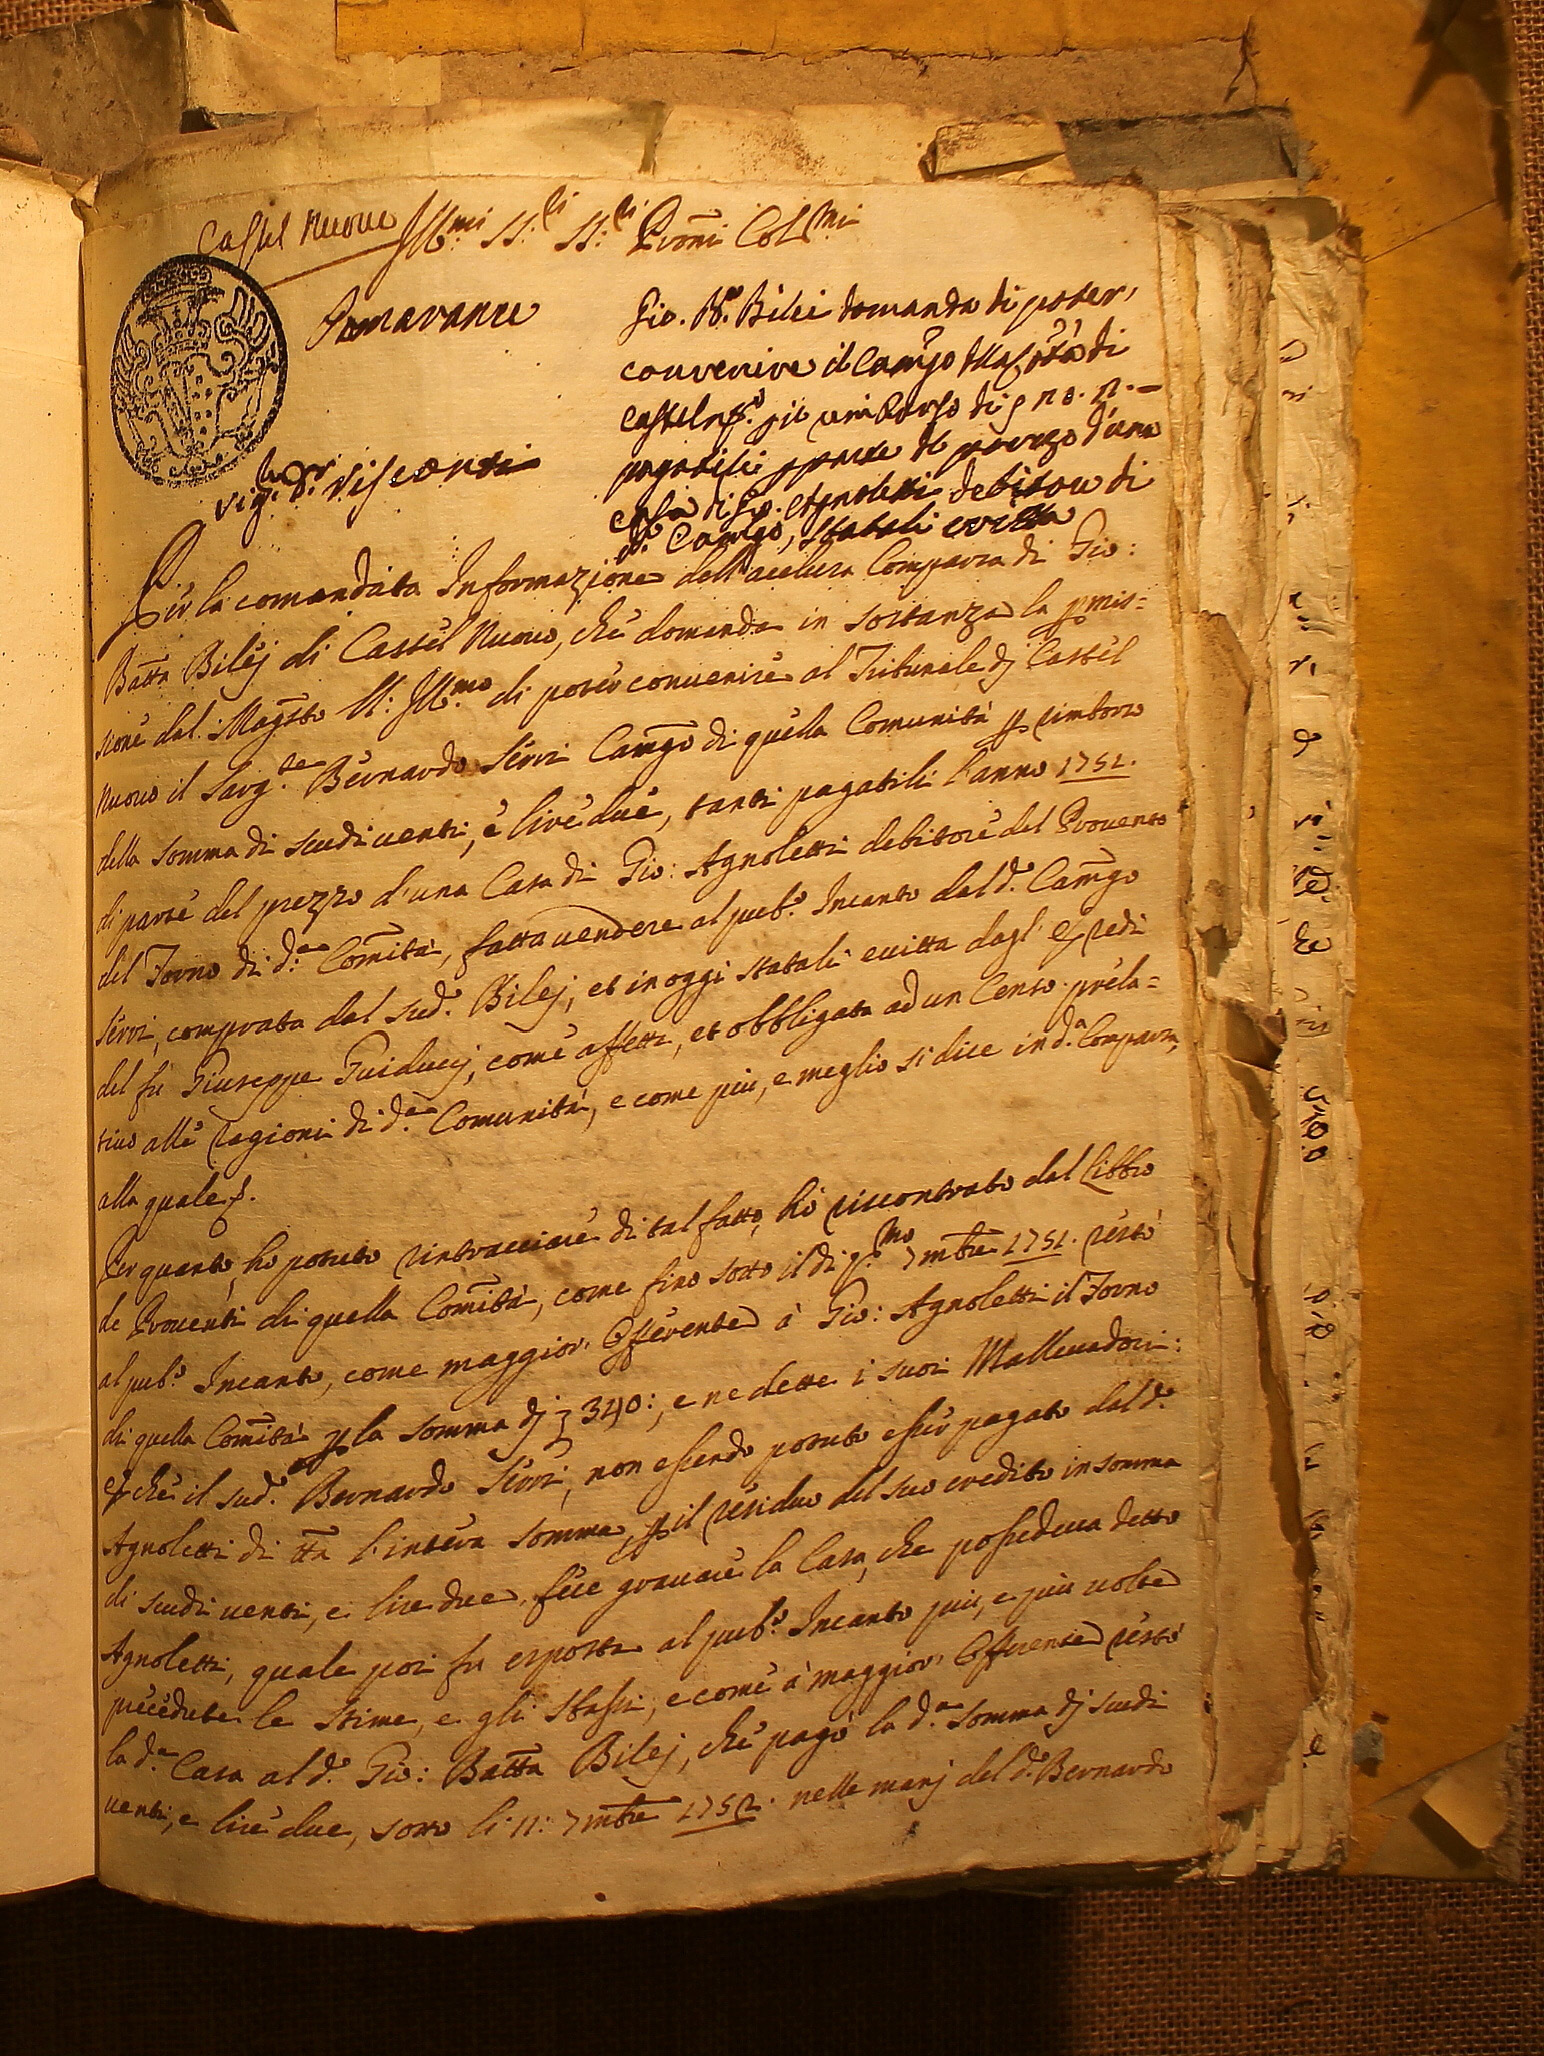 Castel Nuovo Ill.mi SS.ri SS.ri Proni Col.mi
Pomarance
Gio. B.a Bilei domanda di poter'
convenire il Camgo della Cotà di
Casteln.o pil rimborso di s 20. 2. —
pagatili p parte del prezzo d'una
Casa di Gio. Agnoletti debitore di
d.o Camgo, statali evitta
Sig.r D.r Visconti
Per la comandata Informazione dell'acclusa Comparsa di Gio:
Batta Bilej di Castel Nuovo, che domanda in sostanza la pmis=
sione dal Magsto SS: Ill.mo di poter convenire al Tribunale dj Castel
Nuovo il Sarg.te Bernardo Serri Camgo di quella Comunità p rimborso
della somma di scudi venti, e lire due, tanti pagatili l'anno 1752.
di parte del prezzo d'una Casa di Gio: Agnoletti debitore del Provento
del Forno di d.a Comità, fatta vendere al pub.o Incanto dal d.o Camgo
Serri, comprata dal sud.o Bilej, et in oggi statali evitta dagl' Eredi
del fù Giuseppe Guiducij, come affetta, et obbligata ad un Censo prela=
tivo alle ragioni di d.a Comunità, e come più, e meglio si dice in d.a Comparsa,
alla quale &.
Per quanto, ho potuto rintracciare di tal fatto, hò riscontrato dal Libbro
de Proventi di quella Comità, come fino sotto il dì p.mo 7mbre 1751. restò
al pub.o Incanto, come maggior' Offerente à Gio: Agnoletti il Forno
di quella Comità p la somma dj £ 340:, e ne dette i suoi Mallevadori:
E che il sud.o Bernardo Serri, non essendo potuto esser pagato dal d.o
Agnoletti di tta l'intera somma, p il residuo del suo credito in somma
di scudi venti, e lire due, fece gravare la Casa, che possedeva detto
Agnoletti, quale poi fu esposta al pub.o Incanto più, e più volte
precedute le stime, e gli sbassi, e come à maggior' Offerente restò
la d.a Casa al d.o Gio: Batta Bilej, che pagò la d.a somma dj scudi
venti, e lire due, sotto li 11: 7mbre 1752. nelle manj del d.o Bernardo